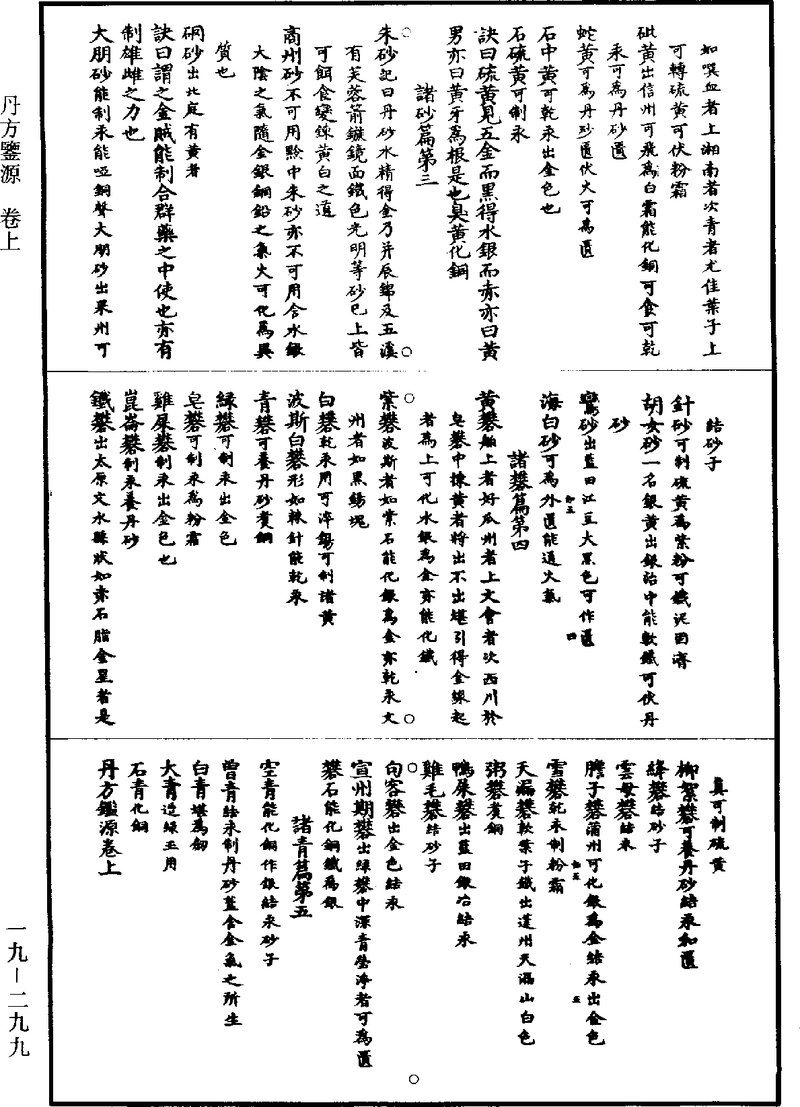 如噀血者上湘南者次青者尤佳葉子上
可轉硫黃可伏粉霜
砒黃出信州可飛為白霜能化銅可食可乾
汞可為丹砂匱
蛇黃可為丹砂匱伏火可為匱
石中黃可乾汞出金色也
石硫黃可制汞
訣曰硫黃見五金而黑得水銀而赤亦曰黃
男亦曰黃牙為根是也臭黃化銅
諸砂篇第三
朱砂記曰丹砂水精得金乃并辰錦及五溪
有芙蓉箭鏃鏡面鐵色光明等砂已上皆
可餌食變鍊黃白之道
商州砂不可用黔中朱砂亦不可用含水銀
太陰之氣隨金銀銅鉛之氣火可化為異
質也
硇砂出北庭有黃者
訣曰謂之金賊能制合群藥之中使也亦有
制雄雌之力也
大朋砂能制汞能啞銅聲大朋砂出果州可
結砂子
針砂可制硫黃為紫粉可鐵泥固濟
胡女砂一名銀黃出銀冶中能軟鐵可伏丹
砂
鸞砂出藍田江豆大黑色可作匱
海白砂可為外匱能通火氣
諸礬篇第四
黃礬舶上者好瓜州者上文會者次西川於
皂礬中揀黃者將出不出堪引得金線起
者為上可化水銀為金亦能化鐵
紫礬波斯者如紫石能化銀為金亦乾汞文
州者如黑錫塊
白礬乾汞用可淬錫可制諸黃
波斯白礬形如棘針能乾汞
青礬可養丹砂煑銅
綠礬可制汞出金色
皂礬可制汞為粉霜
雞屎礬制汞出金色也
崑崙礬制汞養丹砂
鐵礬出太原文水縣狀如赤石脂金星者是
真可制硫黃
柳絮礬可養丹砂結汞和匱
絳礬結砂子
雲母礬結汞
膽子礬蒲州可化銀為金結汞出金色
雪礬乾汞制粉霜
天漏礬軟葉子鐵出蓬州天漏山白色
粥礬煑銅
鴨屎礬出藍田銀冶結汞
雞毛礬結砂子
句容礬出金色結汞
宣州期礬出綠礬中深青瑩淨者可為匱
礬石能化銅鐵為銀
諸青篇第五
空青能化銅作銀結汞砂子
曾青結汞制丹砂蓋含金氣之所生
白青堪為匱
大青造綠玉用
石青化銅
丹方鑑源卷上
丹方鑒源 卷上
一九—二九九